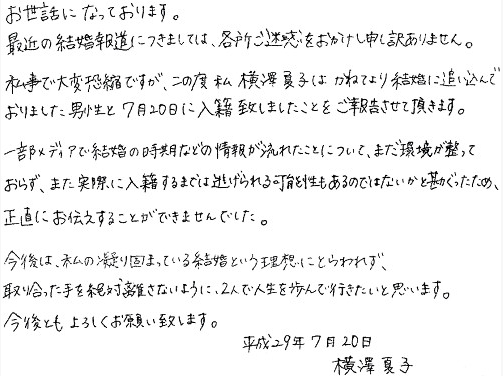 お世話になっております。
最近の結婚報道につきましては、各所ご迷惑をおかけし申し訳ありません。
私事で大変恐縮ですが、この度 私 横澤夏子は かねてより結婚に追い込んで
おりました男性と 7月20日に入籍致しましたことをご報告させて頂きます。
一部メディアで結婚の時期などの情報が流れたことについて、まだ環境が整って
おらず、また実際に入籍するまでは逃げられる可能性もあるのではないかと勘ぐったため、
正直にお伝えすることができませんでした。
今後は、私の凝り固まっている結婚という理想にとらわれず、
取り合った手を絶対離さないように、2人で人生を歩んで行きたいと思います。
今後とも よろしくお願い致します。
平成29年7月20日
横澤夏子